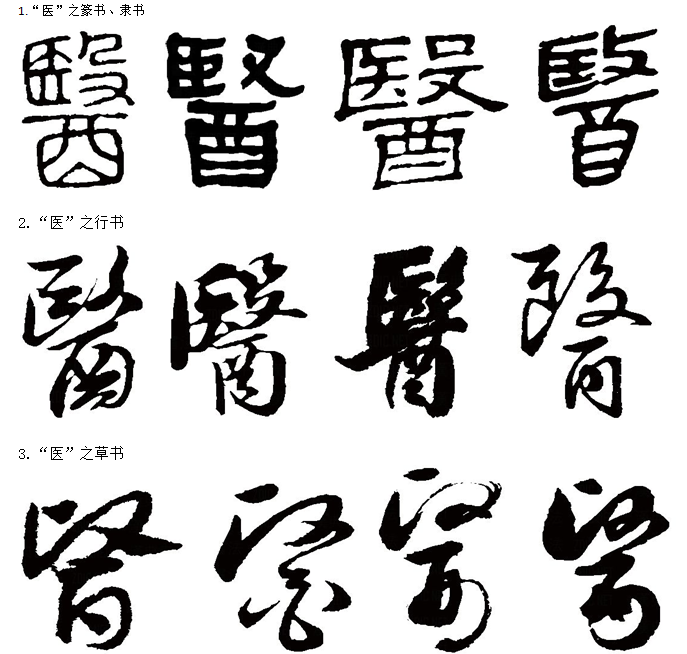 1.“医”之篆书、隶书
醫 醫 醫 醫
2.“医”之行书
醫 醫 醫 醫
3.“医”之草书
醫 醫 醫 醫